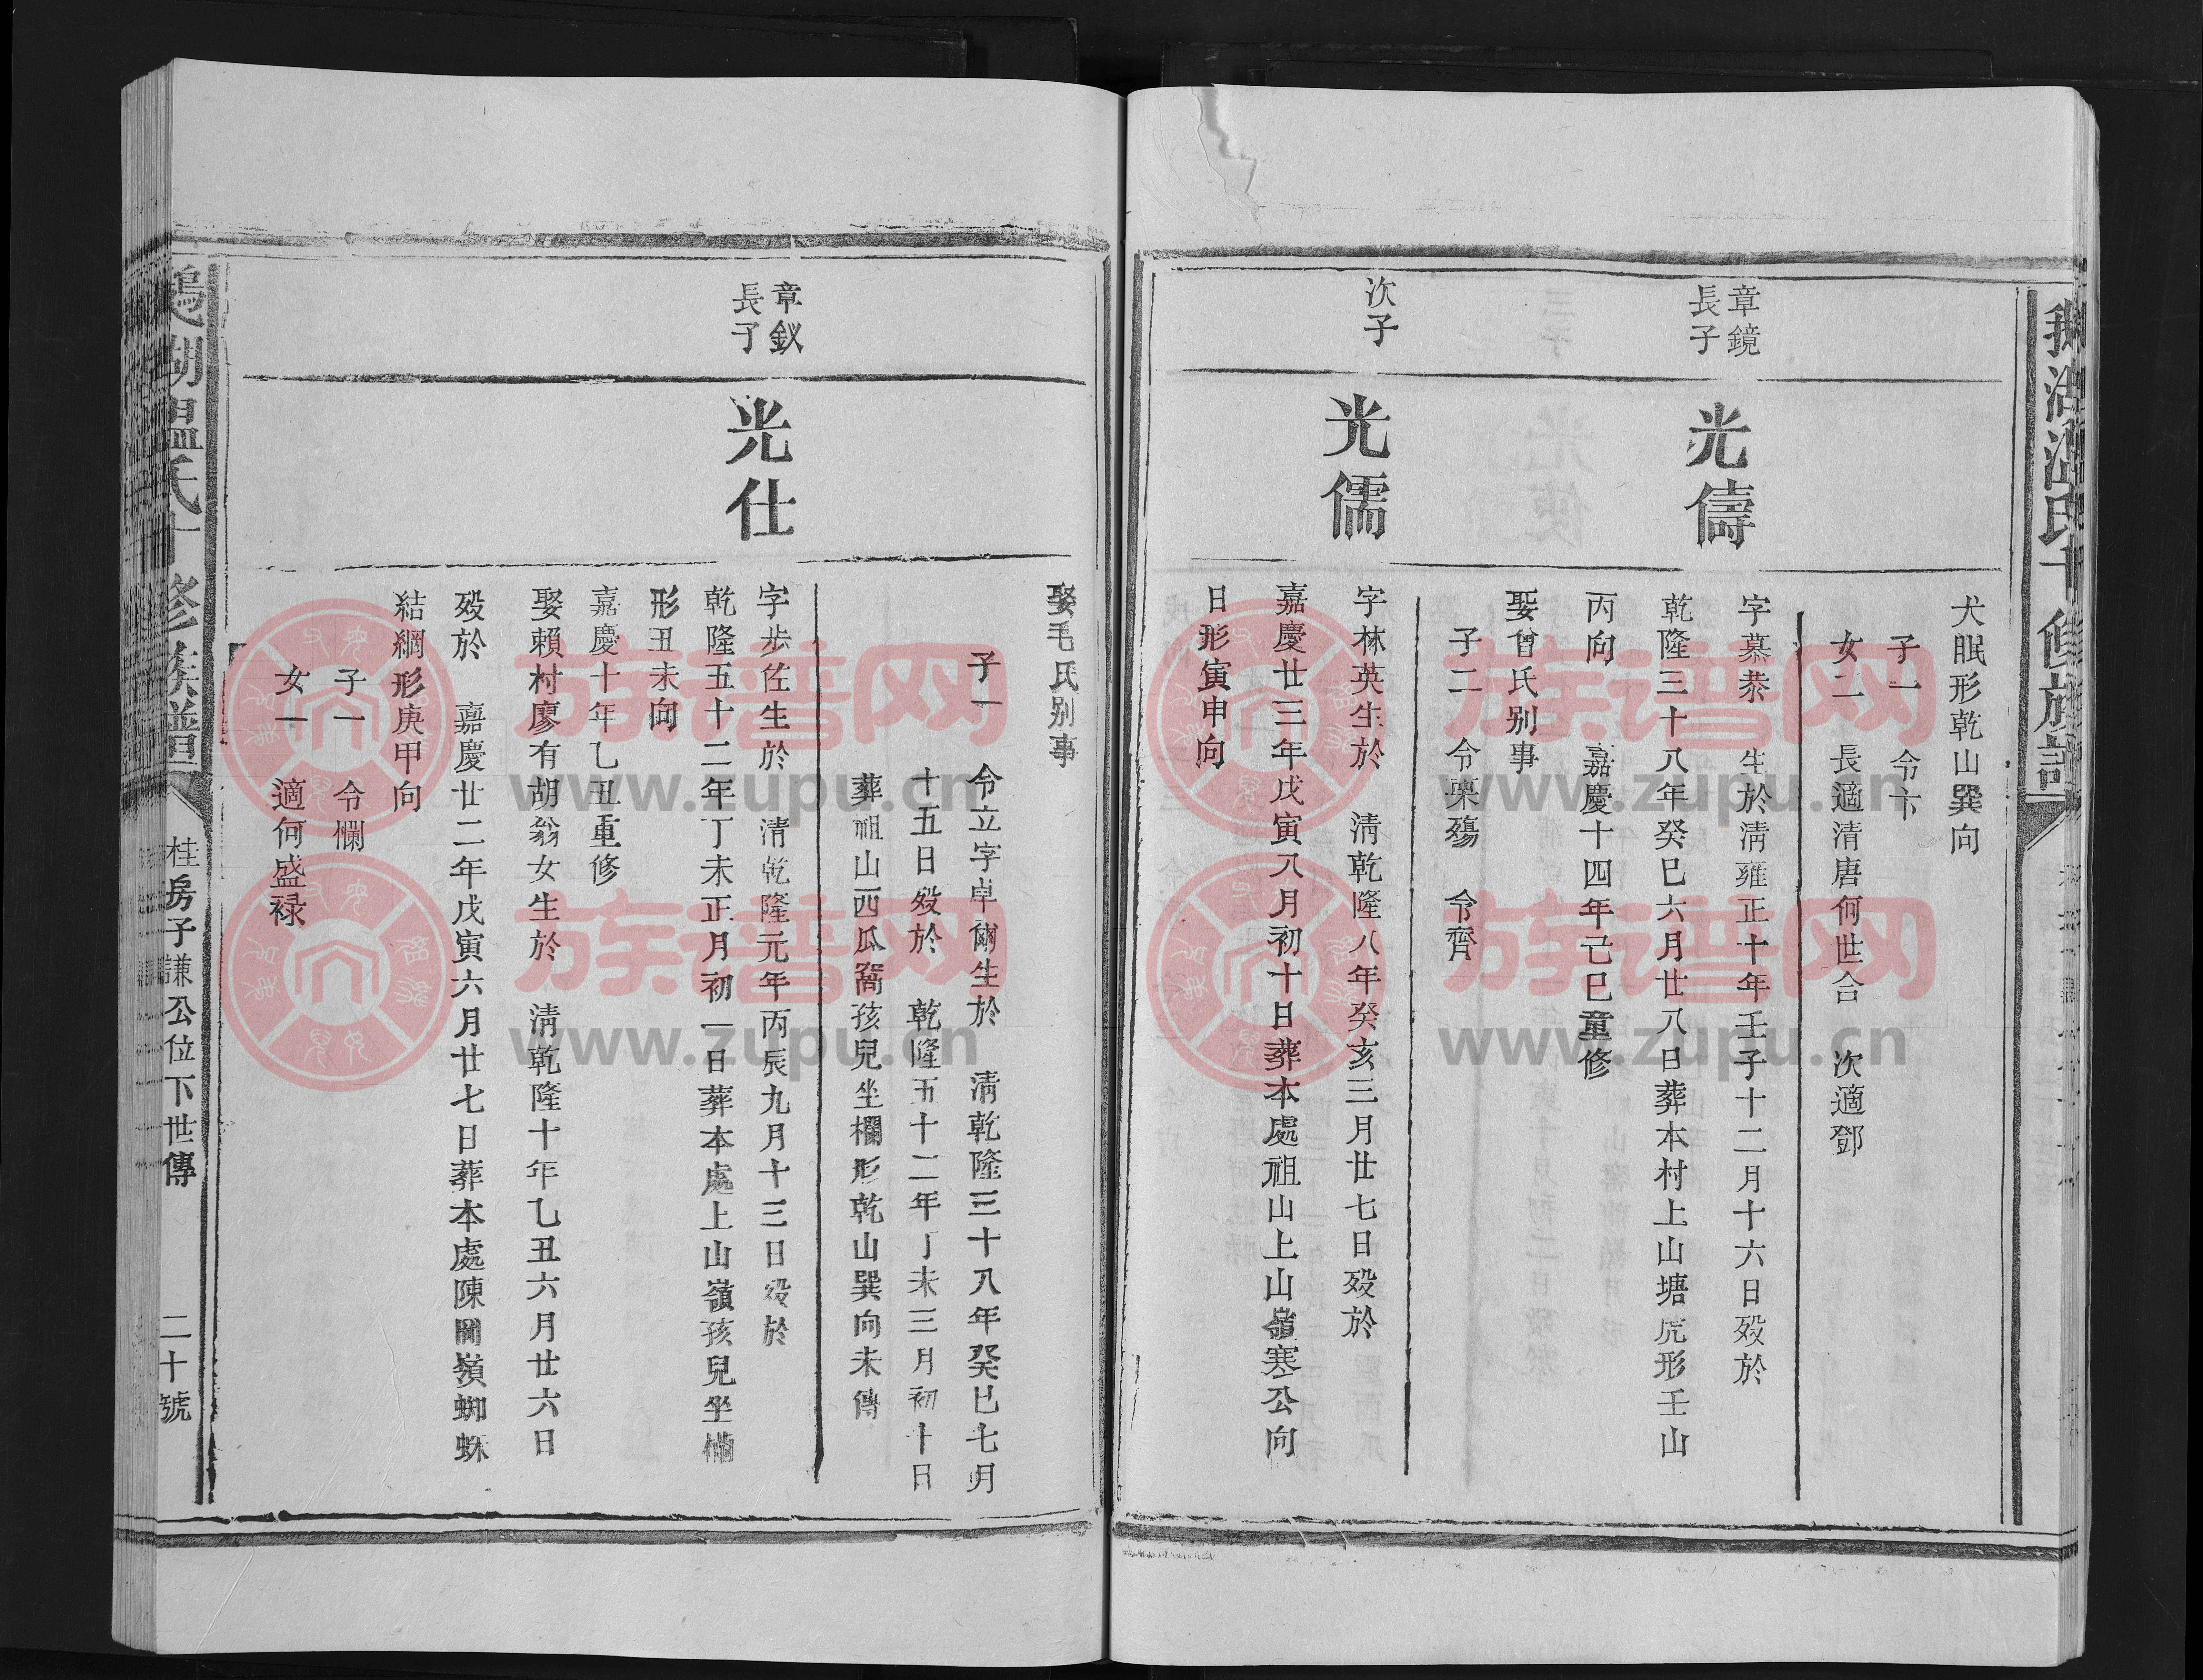 犬眠形乾山巽向
子一 令卞
女二 長適清唐何世合 次適鄧
章鏡
長子
光儔
字慕恭 生於清雍正十年壬子十二月十六日歿於
乾隆三十八年癸巳六月廿八日葬本村上山塘虎形壬山
丙向 嘉慶十四年己巳重修
娶曾氏别事
子二 令栗殤 令齊
次子
光儒
字林英生於 清乾隆八年癸亥三月廿七日歿於
嘉慶廿三年戊寅八月初十日葬本處祖山上山嶺寒公向
日形寅申向
娶毛氏别事
子一 令立字卓爾生於 清乾隆三十八年癸巳七月
十五日歿於 乾隆五十二年丁未三月初十日
葬祖山西瓜窩孩兒坐欄形乾山巽向未傳
章釵
長子
光仕
字步佐生於 清乾隆元年丙辰九月十三日歿於
乾隆五十二年丁未正月初一日葬本處上山嶺孩兒坐欄
形丑未向
嘉慶十年乙丑重修
娶賴村廖有胡翁女生於 清乾隆十年乙丑六月廿六日
歿於 嘉慶廿二年戊寅六月廿七日葬本處陳圖嶺蜘蛛
結網形庚甲向
子一 令欄
女一 適何盛禄
鵝湖溫氏十修族譜
桂房子謙公位下世傳
二十號
族谱网
www.zupu.cn
族谱网
www.zupu.cn
族谱网
www.zupu.cn
族谱网
www.zupu.cn